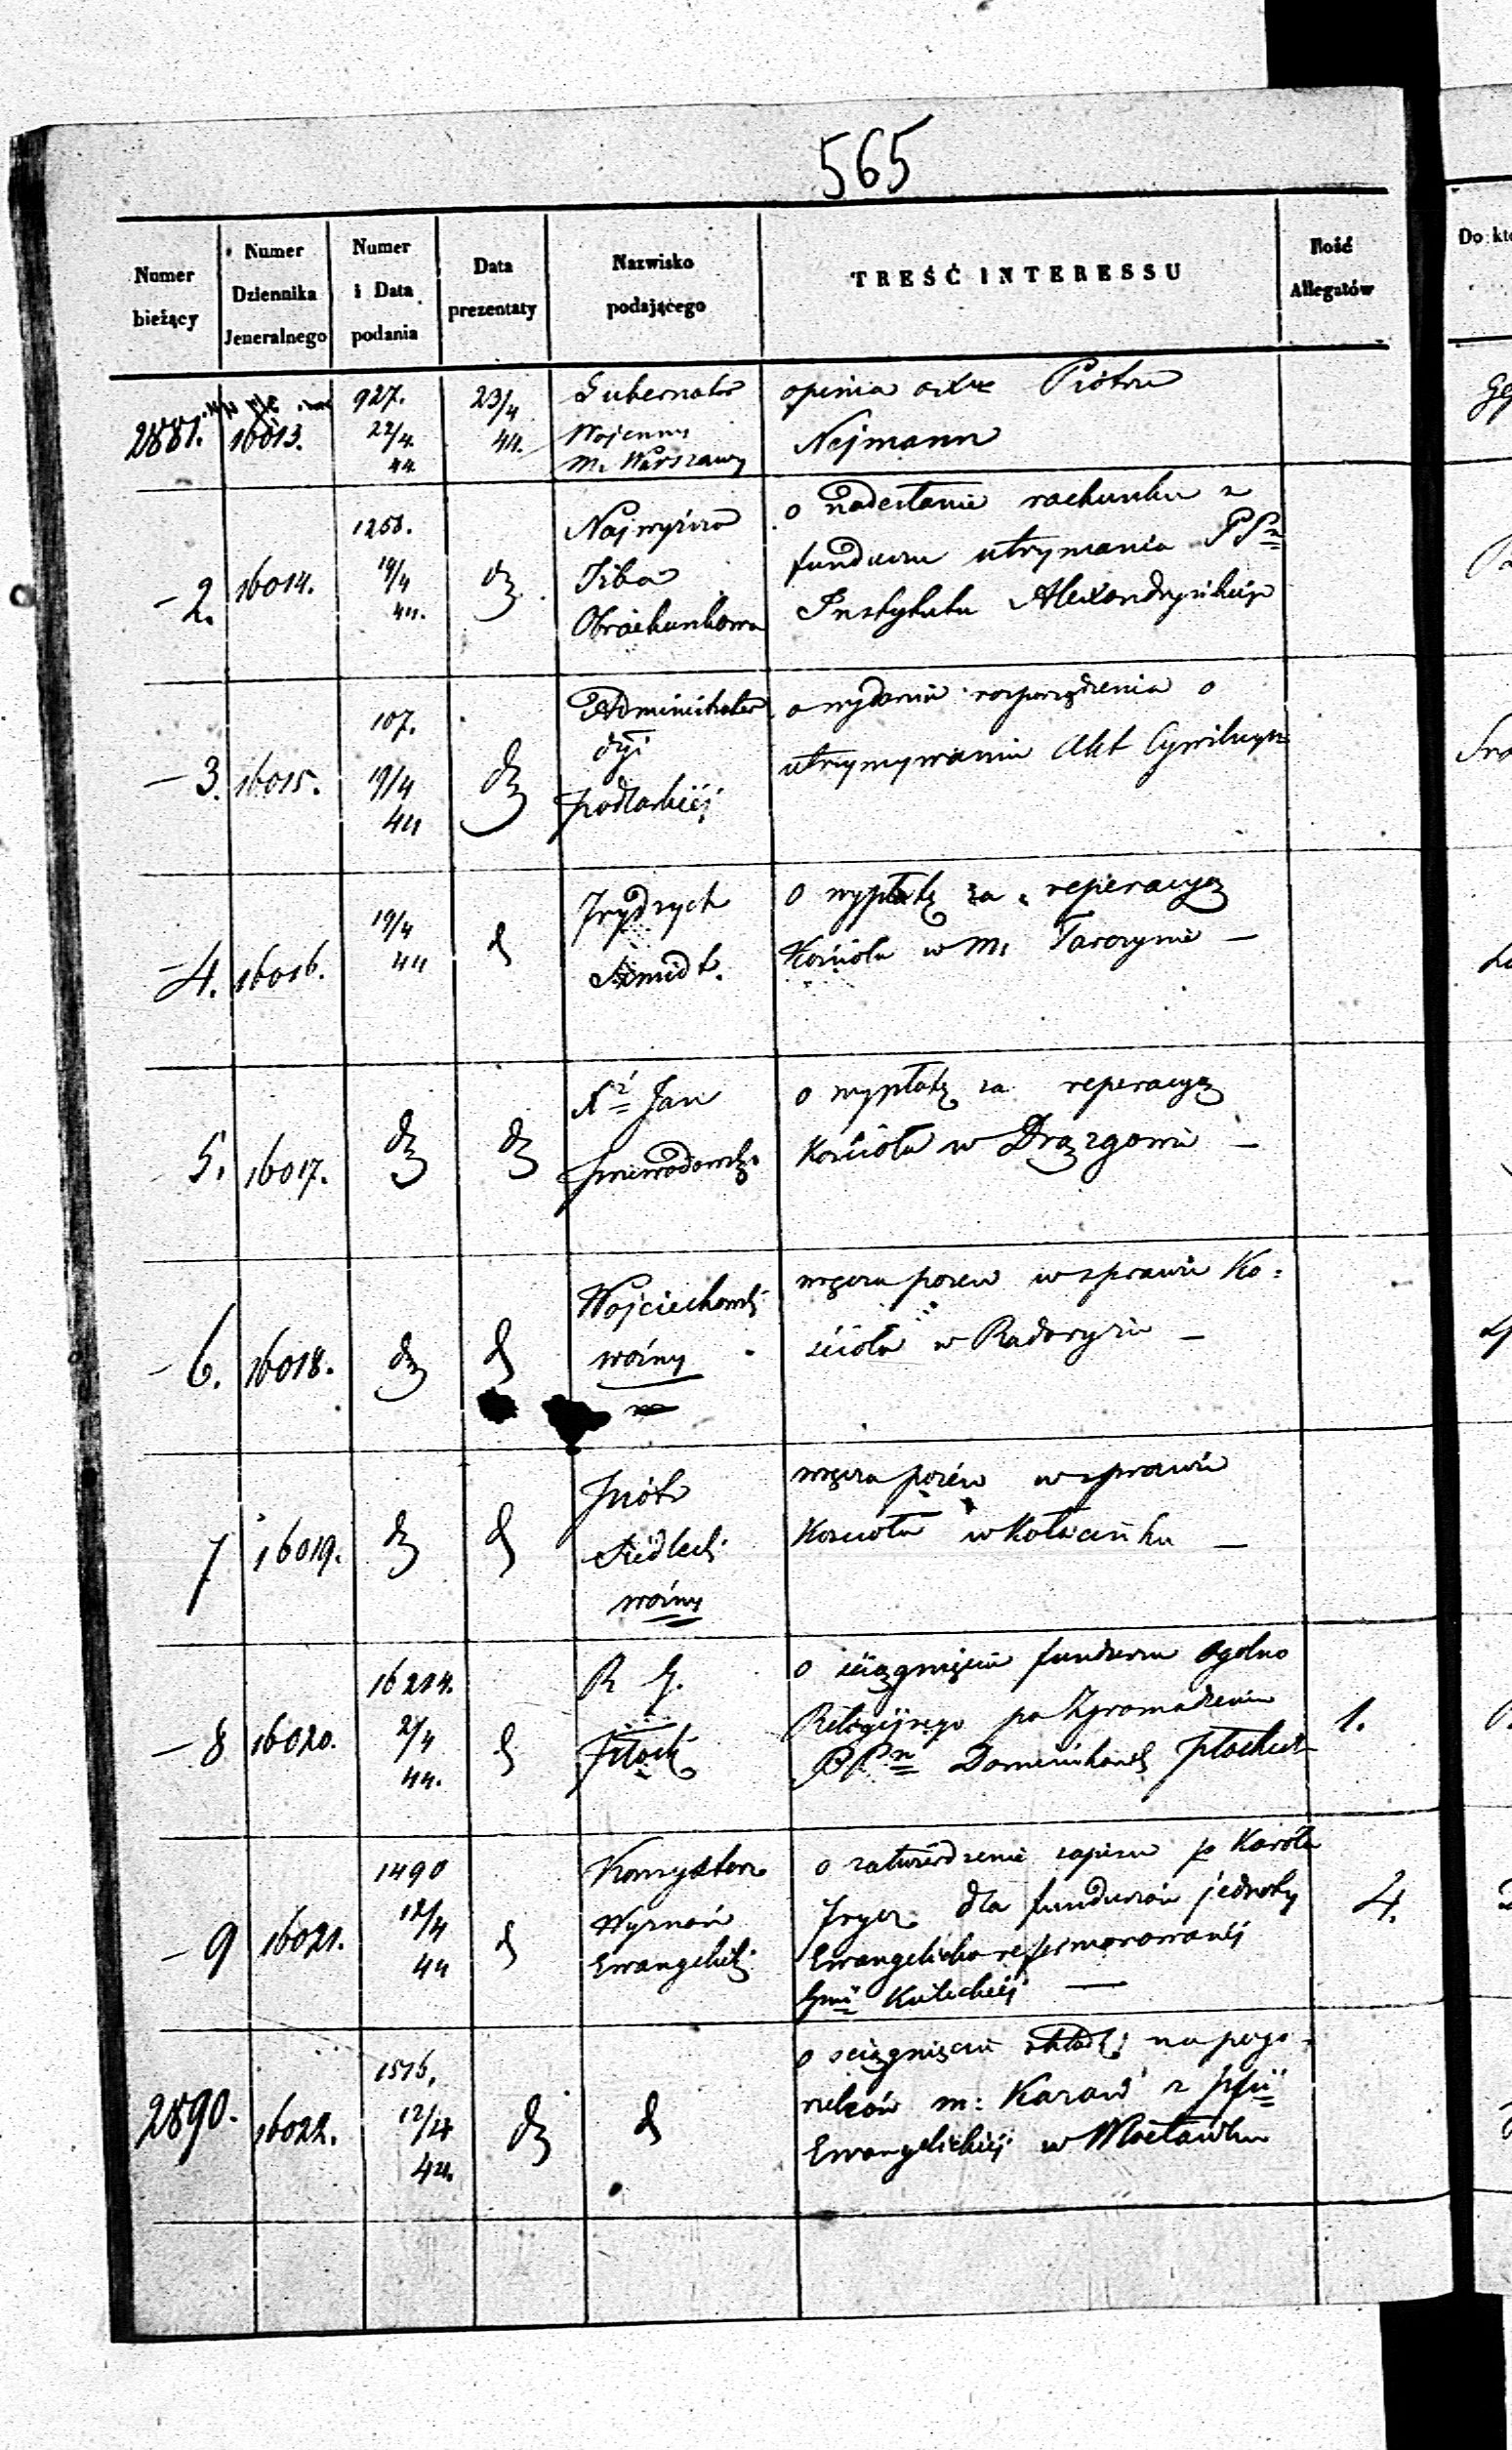 565
Numer bieżący
Numer Dziennika Jeneralnego
Numer i Data podania
Data prezentaty
Nazwisko podającego
TREŚĆ INTERESSU
Ilość Allegatów
Do kt
2881. 16013. 927. 22/4 44. 23/4 44. Gubernator Wojenny M. Warszawy
opinia Piotra
Nejmann
– 2. 16014. 1258. 19/4 44. Najwyższa Izba Obrachunkowa
o nadesłanie rachunku z
funduszu utrzymania PPn
Instytutu Alexandryńskiego
– 3. 16015. 107. 19/4 44 Administrator Dyi podlaskiéj
o wydanie rozporządzenia o
utrzymywaniu Akt Cywilnych
– 4. 16016. 19/4 44 Frydrych Szmidt.
o wypłatę za reperacyę
Kościoła w M. Tarczynie –
5. 16017. Xz Jan
o wypłatę za reperacyę
Kościoła w Drązgowie –
– 6. 16018. Wojciechowski woźny
wręcza pozew w sprawie Ko=
ścioła w Radoryżu –
7 16019. Piotr Siedlecki woźny
wręcza pozew w sprawie
Kościoła w –
– 8 16020. 16214. 2/4 44. R G. Płocki
o ściągnięcie funduszu Ogólno
Religijnego po Zgromadzeniu
PPn Dominikanek Płockich
1.
– 9 16021. 1490 12/4 44 Konsystorz Wyznań Ewangelick.
o zatwierdzenie zapisu po Karolu
dla funduszów jednoty
Ewangelicko reformowanéj
Gmi
4.
2890. 16022. 1516, 12/4 44.
o ściągnięcie składki na pogo=
rzelców m: z Pfii
Ewangelickiéj w Włocławku